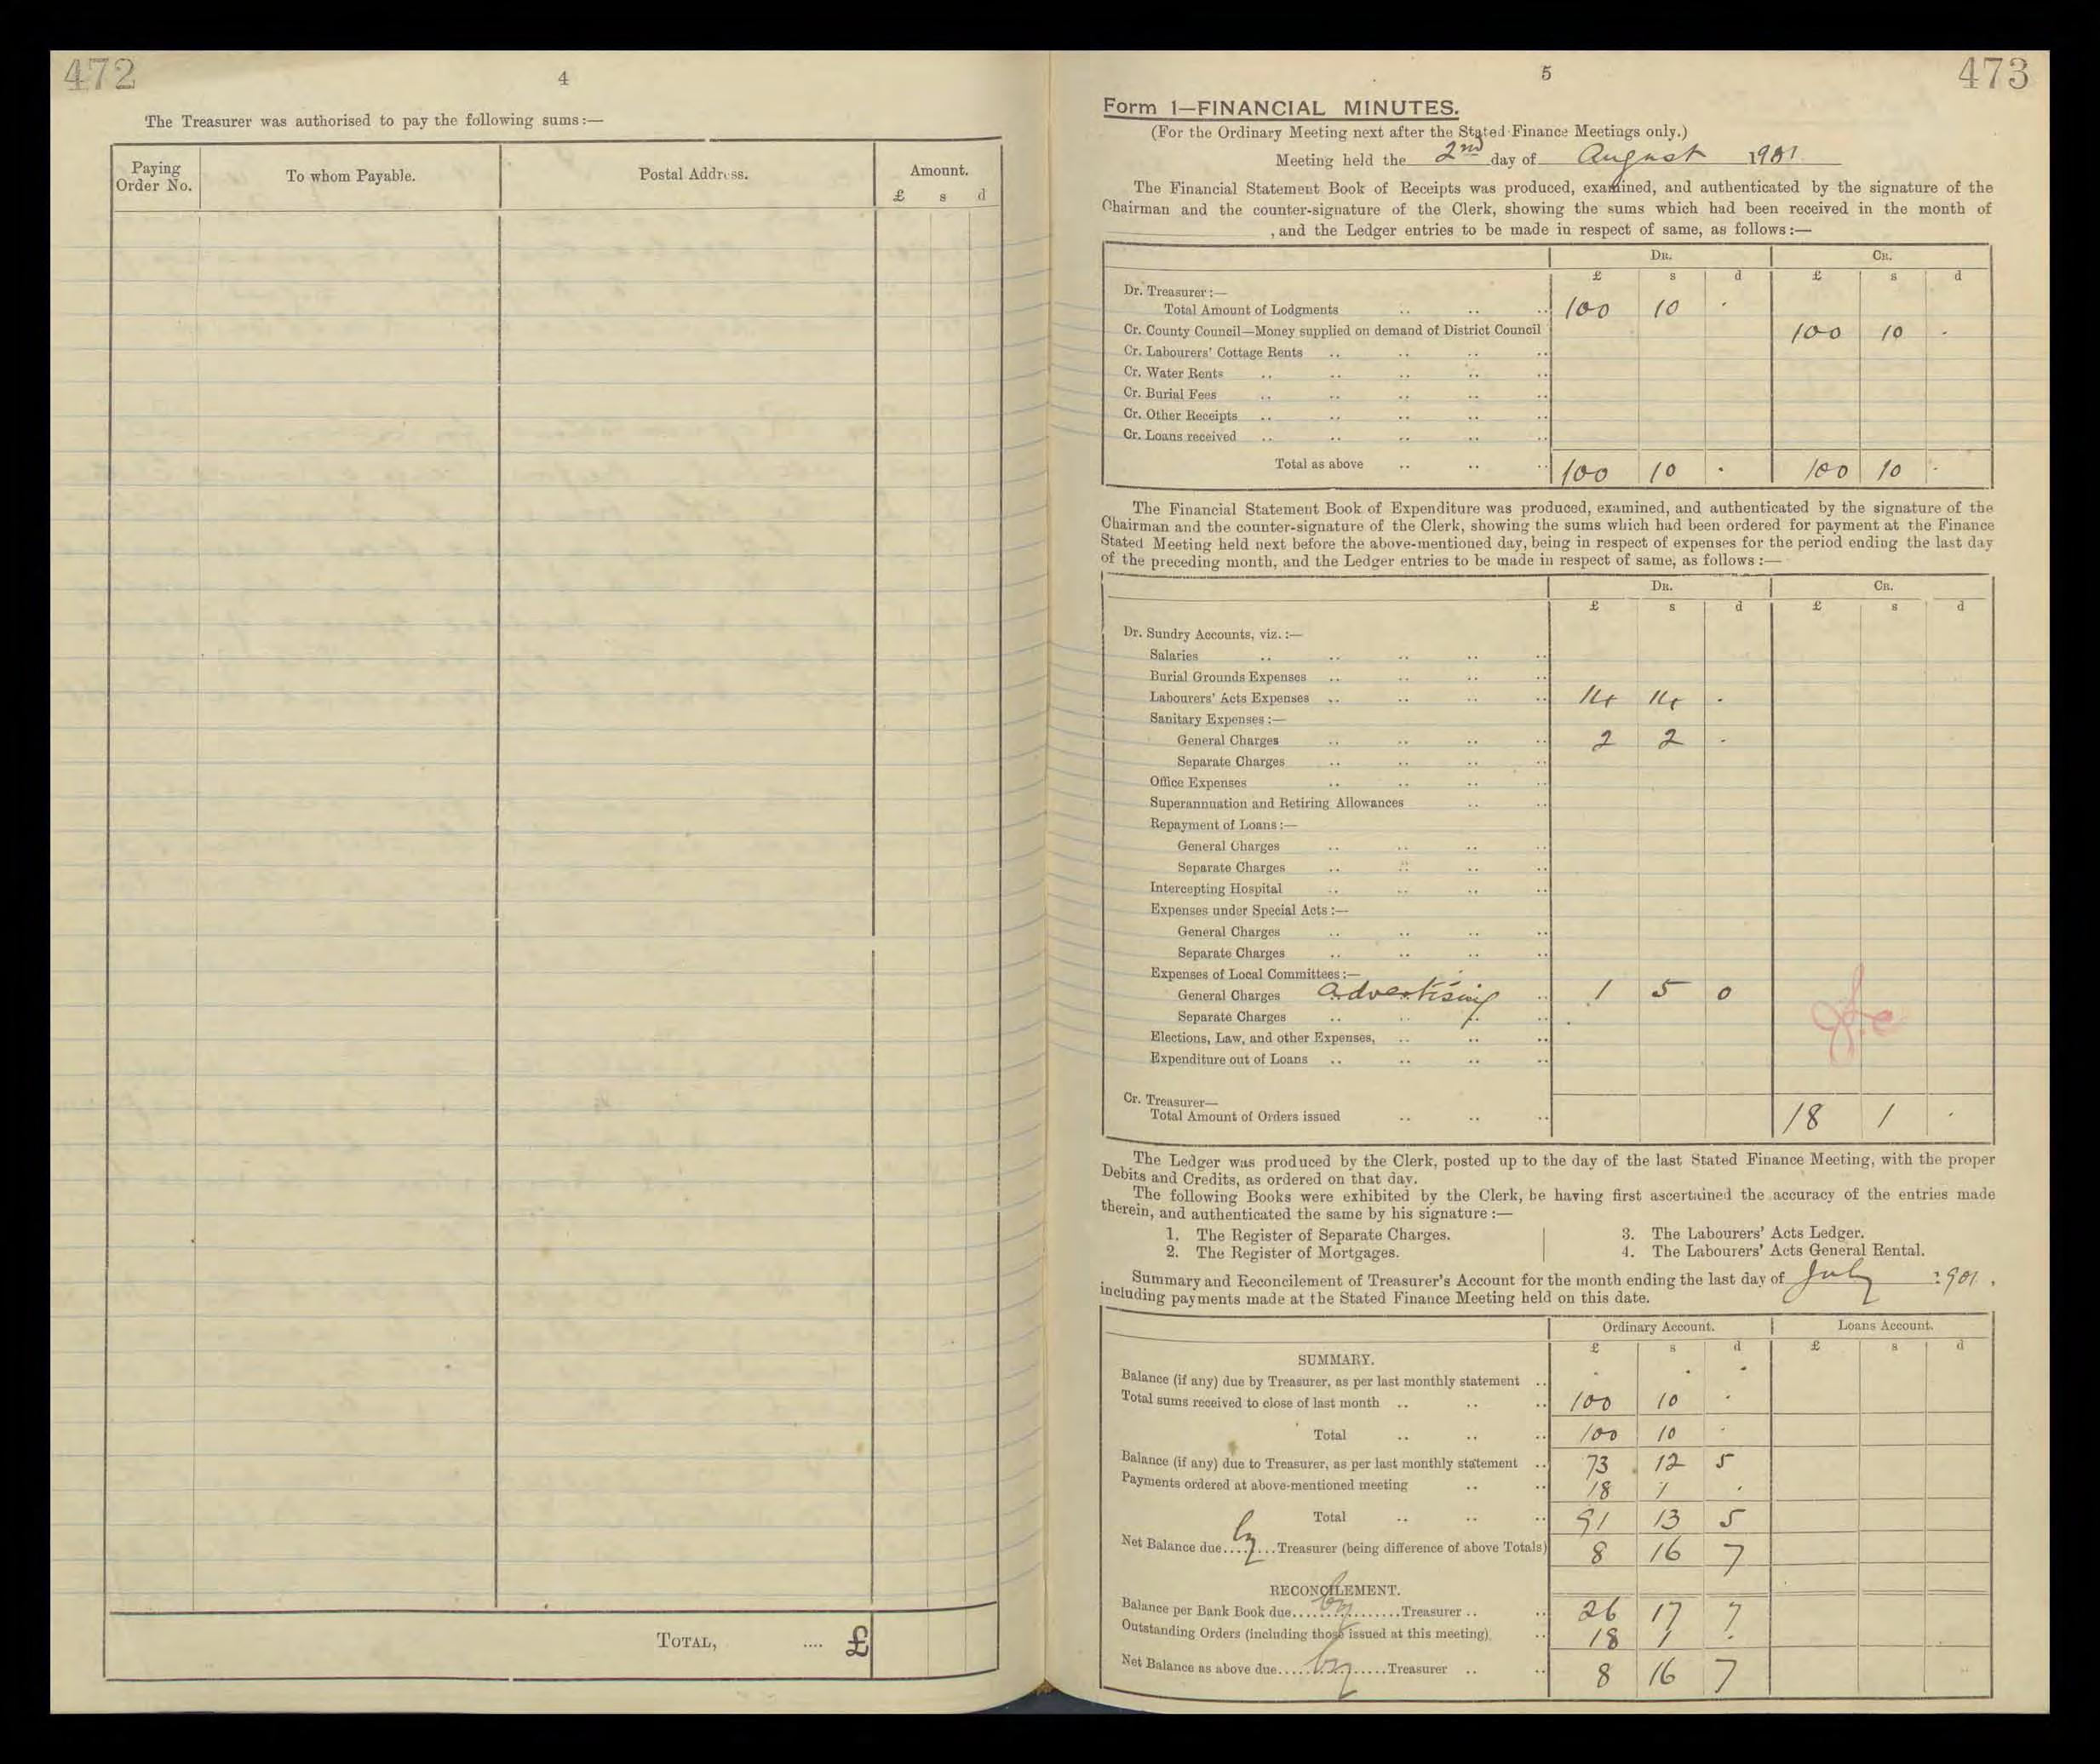 472
4
The Treasurer was authorised to pay the following sums:—
Paying Order No. To whom Payable. Postal Address. Amount.
£ s d
TOTAL, .... £
5
473
Form 1—FINANCIAL MINUTES.
(For the Ordinary Meeting next after the Stated Finance Meetings only.)
Meeting held the 2nd day of August 1901
The Financial Statement Book of Receipts was produced, examined, and authenticated by the signature of the
Chairman and the counter-signature of the Clerk, showing the sums which had been received in the month of
, and the Ledger entries to be made in respect of same, as follows:—
DR. CR.
£ s d £ s d
Dr. Treasurer:—
Total Amount of Lodgments .. .. .. 100 10 .
Cr. County Council—Money supplied on demand of District Council 100 10 .
Cr. Labourers' Cottage Rents .. .. .. ..
Cr. Water Rents .. .. .. .. ..
Cr. Burial Fees .. .. .. .. ..
Cr. Other Receipts .. .. .. .. ..
Cr. Loans received .. .. .. .. ..
Total as above .. .. .. 100 10 . 100 10 .
The Financial Statement Book of Expenditure was produced, examined, and authenticated by the signature of the
Chairman and the counter-signature of the Clerk, showing the sums which had been ordered for payment at the Finance
Stated Meeting held next before the above-mentioned day, being in respect of expenses for the period ending the last day
of the preceding month, and the Ledger entries to be made in respect of same, as follows:—
DR. CR.
£ s d £ s d
Dr. Sundry Accounts, viz.:—
Salaries .. .. .. .. ..
Burial Grounds Expenses .. .. .. ..
Labourers' Acts Expenses .. .. .. .. 14 14 .
Sanitary Expenses:—
General Charges .. .. .. .. 2 2 .
Separate Charges .. .. .. ..
Office Expenses .. .. .. ..
Superannuation and Retiring Allowances .. ..
Repayment of Loans:—
General Charges .. .. .. ..
Separate Charges .. .. .. ..
Intercepting Hospital .. .. .. ..
Expenses under Special Acts:—
General Charges .. .. .. ..
Separate Charges .. .. .. ..
Expenses of Local Committees:—
General Charges advertising .. 1 5 0
Separate Charges .. .. .. ..
Elections, Law, and other Expenses, .. .. ..
Expenditure out of Loans .. .. .. ..
Cr. Treasurer—
Total Amount of Orders issued .. .. .. 18 1 .
The Ledger was produced by the Clerk, posted up to the day of the last Stated Finance Meeting, with the proper
Debits and Credits, as ordered on that day.
The following Books were exhibited by the Clerk, he having first ascertained the accuracy of the entries made
therein, and authenticated the same by his signature:—
1. The Register of Separate Charges. 3. The Labourers' Acts Ledger.
2. The Register of Mortgages. 4. The Labourers' Acts General Rental.
Summary and Reconcilement of Treasurer's Account for the month ending the last day of July 1901,
including payments made at the Stated Finance Meeting held on this date.
Ordinary Account. Loans Account.
£ s d £ s d
SUMMARY.
Balance (if any) due by Treasurer, as per last monthly statement .. . . .
Total sums received to close of last month .. .. .. 100 10 .
Total .. .. .. 100 10 .
Balance (if any) due to Treasurer, as per last monthly statement .. 73 12 5
Payments ordered at above-mentioned meeting .. .. 18 1 .
Total .. .. .. 91 13 5
Net Balance due....by...Treasurer (being difference of above Totals) 8 16 7
RECONCILEMENT.
Balance per Bank Book due......by........Treasurer .. .. 26 17 7
Outstanding Orders (including those issued at this meeting) .. 18 1 .
Net Balance as above due.....by.....Treasurer .. .. 8 16 7